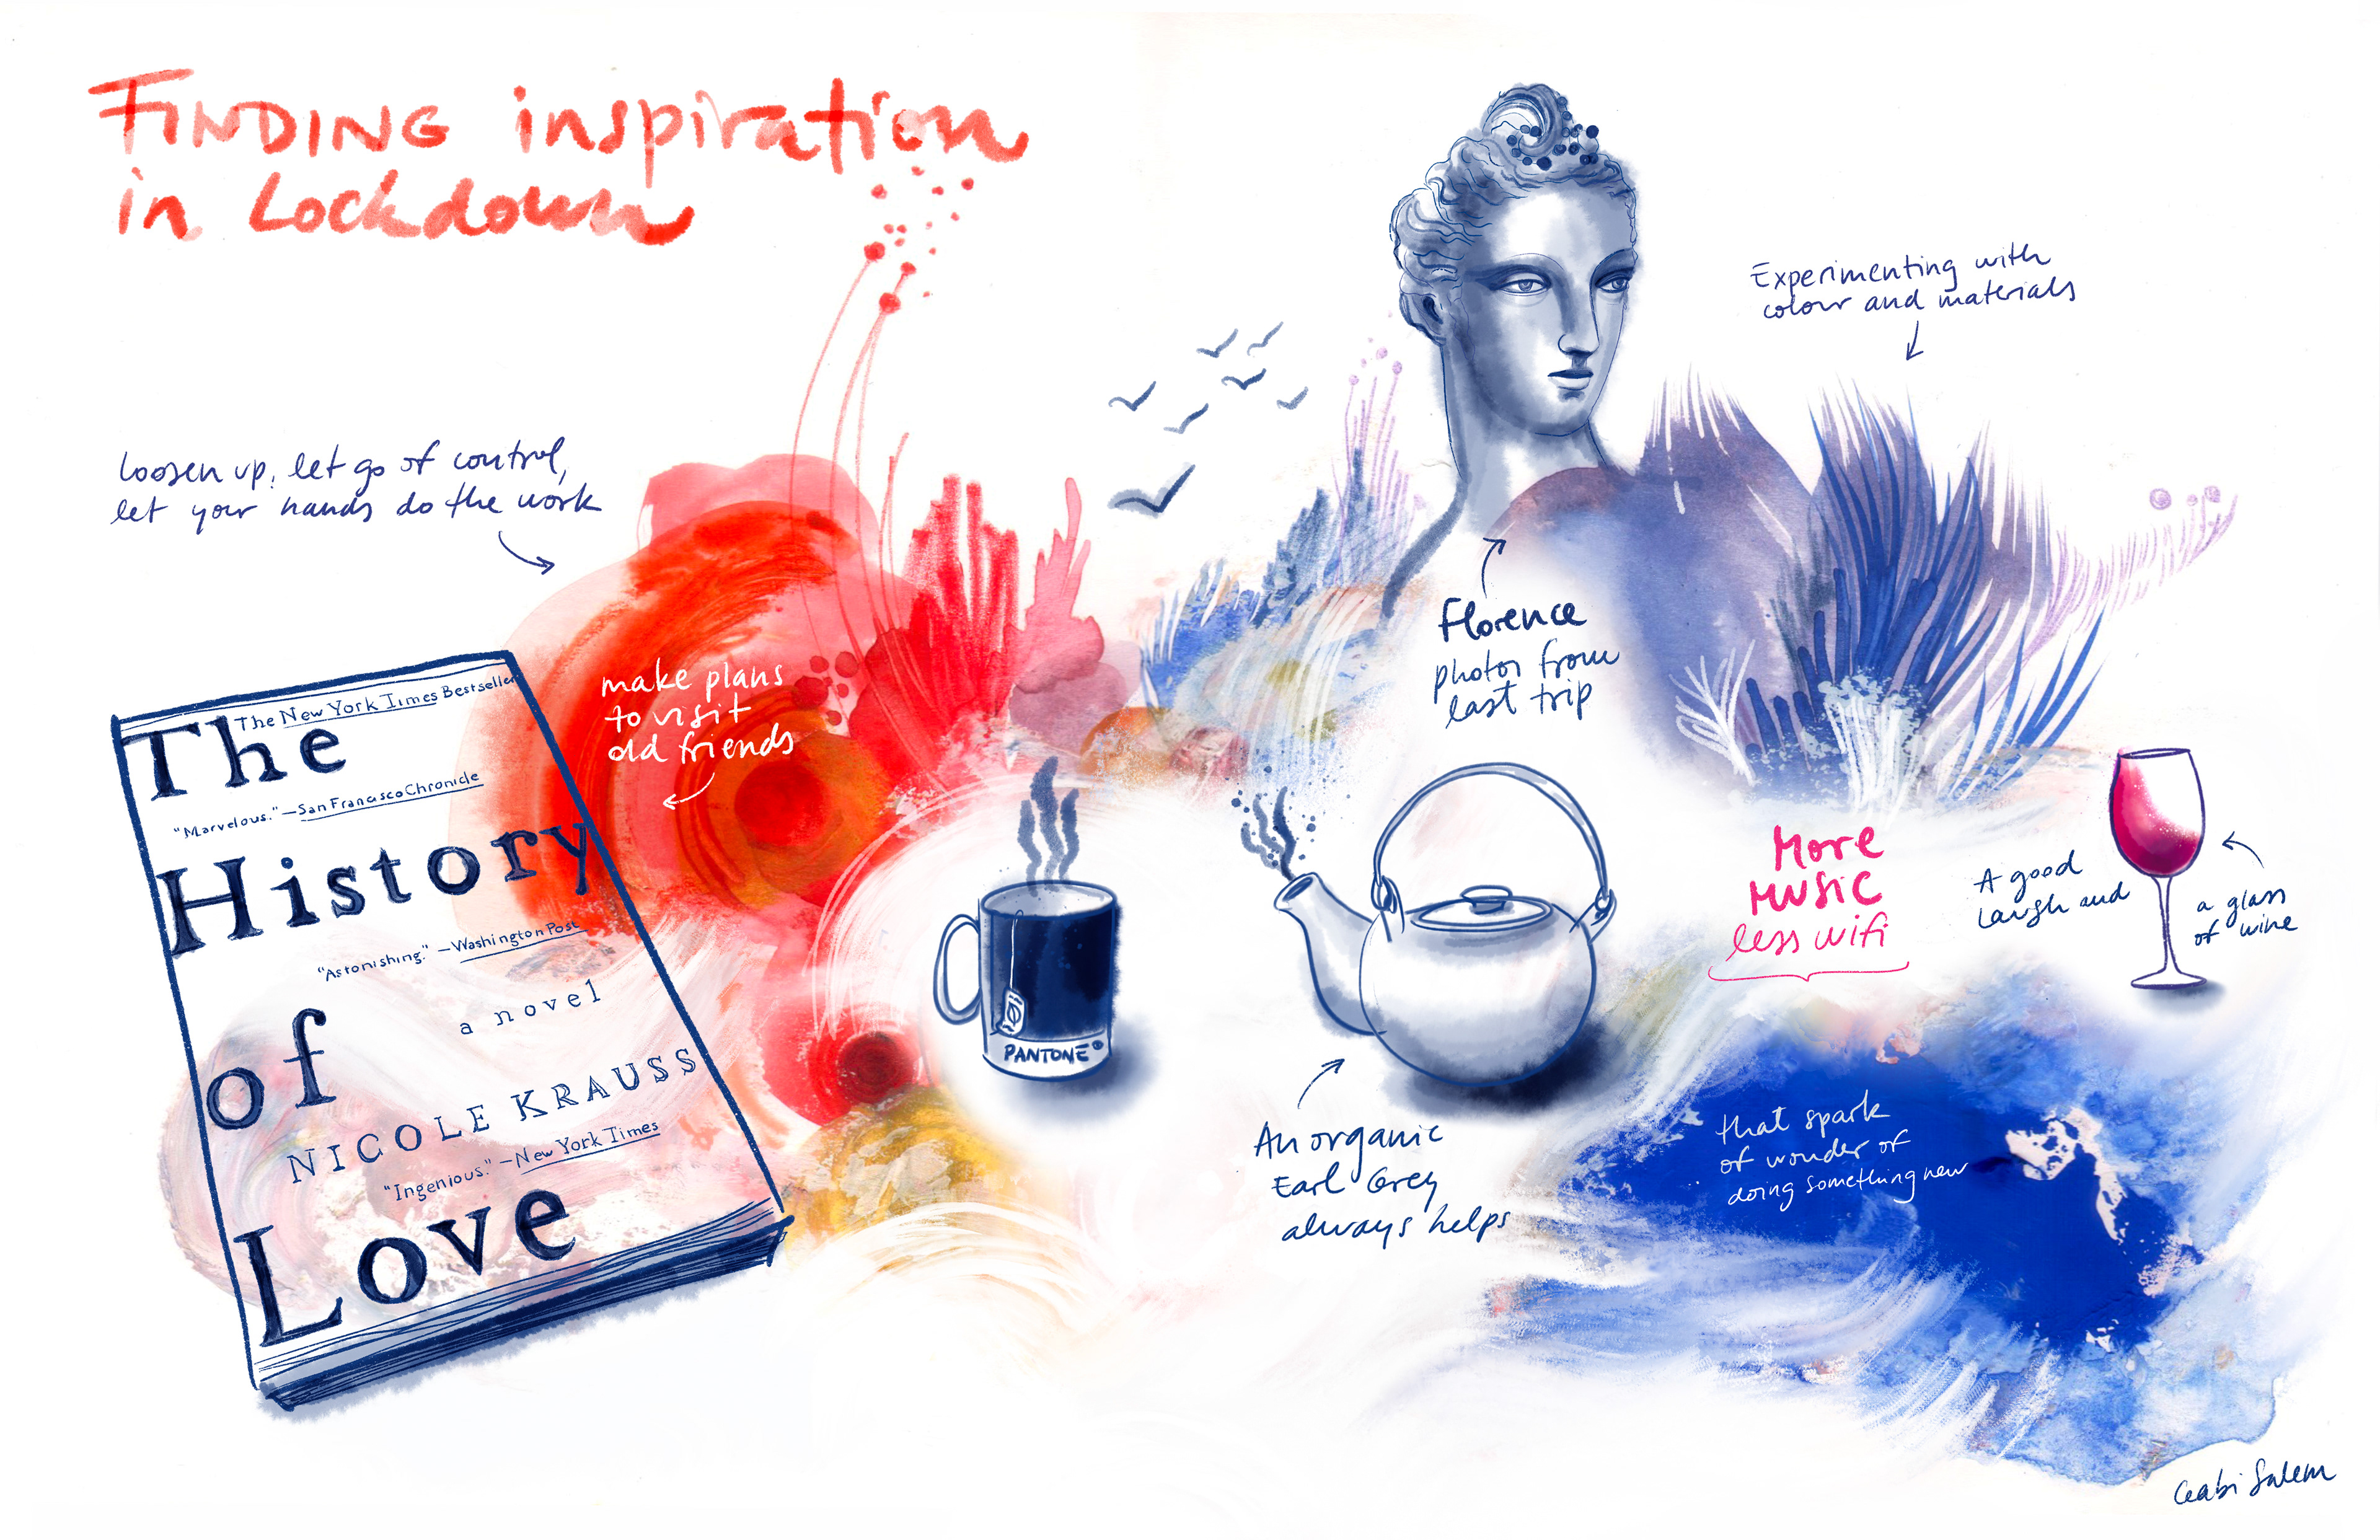 FINDING inspiration
in Lockdown
loosen up, let go of control,
let your hands do the work
The New York Times Bestseller
The
"Marvelous."—San Francisco Chronicle
History
"Astonishing."—Washington Post
of
a novel
NICOLE KRAUSS
"Ingenious."—New York Times
Love
make plans
to visit
old friends
PANTONE®
Florence
photos from
last trip
Experimenting with
colour and materials
An organic
Earl Grey
always helps
More
Music
less wifi
A good
laugh and
a glass
of wine
that spark
of wonder of
doing something new
Gabi Salem